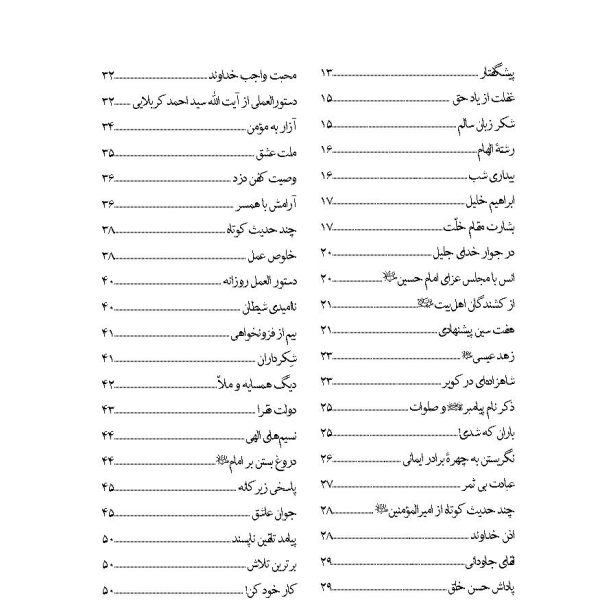 پیشگفتار ۱۳
غفلت از یاد حق ۱۵
شکر زبان سالم ۱۵
رشتهٔ الهام ۱۶
بیداری شب ۱۶
ابراهیم خلیل ۱۷
بشارت مقام خلّت ۱۷
در جوار خدای جلیل ۲۰
انس با مجلس عزای امام حسین ۲۰
از کشندگان اهل‌بیت ۲۱
هفت سین پیشنهادی ۲۱
زهد عیسی ۲۳
شاهزاده‌ای در کویر ۲۳
ذکر نام پیامبر و صلوات ۲۵
باران که شدی! ۲۵
نگریستن به چهرهٔ برادر ایمانی ۲۶
عبادت بی ثمر ۲۷
چند حدیث کوتاه از امیرالمؤمنین ۲۸
اذن خداوند ۲۸
لقای جاودانی ۲۹
پاداش حسن خلق ۲۹
محبت واجب خداوند ۳۲
دستورالعملی از آیت الله سید احمد کربلایی ۳۲
آزار به مؤمن ۳۴
ملت عشق ۳۵
وصیت کفن دزد ۳۶
آرامش با همسر ۳۶
چند حدیث کوتاه ۳۸
خلوص عمل ۳۸
دستور العمل روزانه ۴۰
ناامیدی شیطان ۴۰
بیم از فزونخواهی ۴۱
شکرداران ۴۱
دیگ همسایه و ملاّ ۴۲
دولت فقرا ۴۳
نسیم‌های الهی ۴۴
دروغ بستن بر امام ۴۴
پاسخی زیرکانه ۴۵
جوان عاشق ۴۵
پیامد تلقین ناپسند ۵۰
برترین تلاش ۵۰
کار خود کن! ۵۰